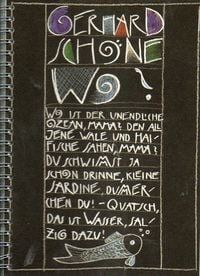 GERHARD
SCHÖNE
WO?
WO IST DER UNENDLICHE
OZEAN, MAMA? DEN ALL
JENE WALE UND HAI-
FISCHE SAHEN, MAMA?
DU SCHWIMST JA
SCHON DRINNE, KLEINE
SARDINE, DUMER-
CHEN DU! – QUATSCH,
DAS IST WASSER, SAL-
ZIG DAZU!